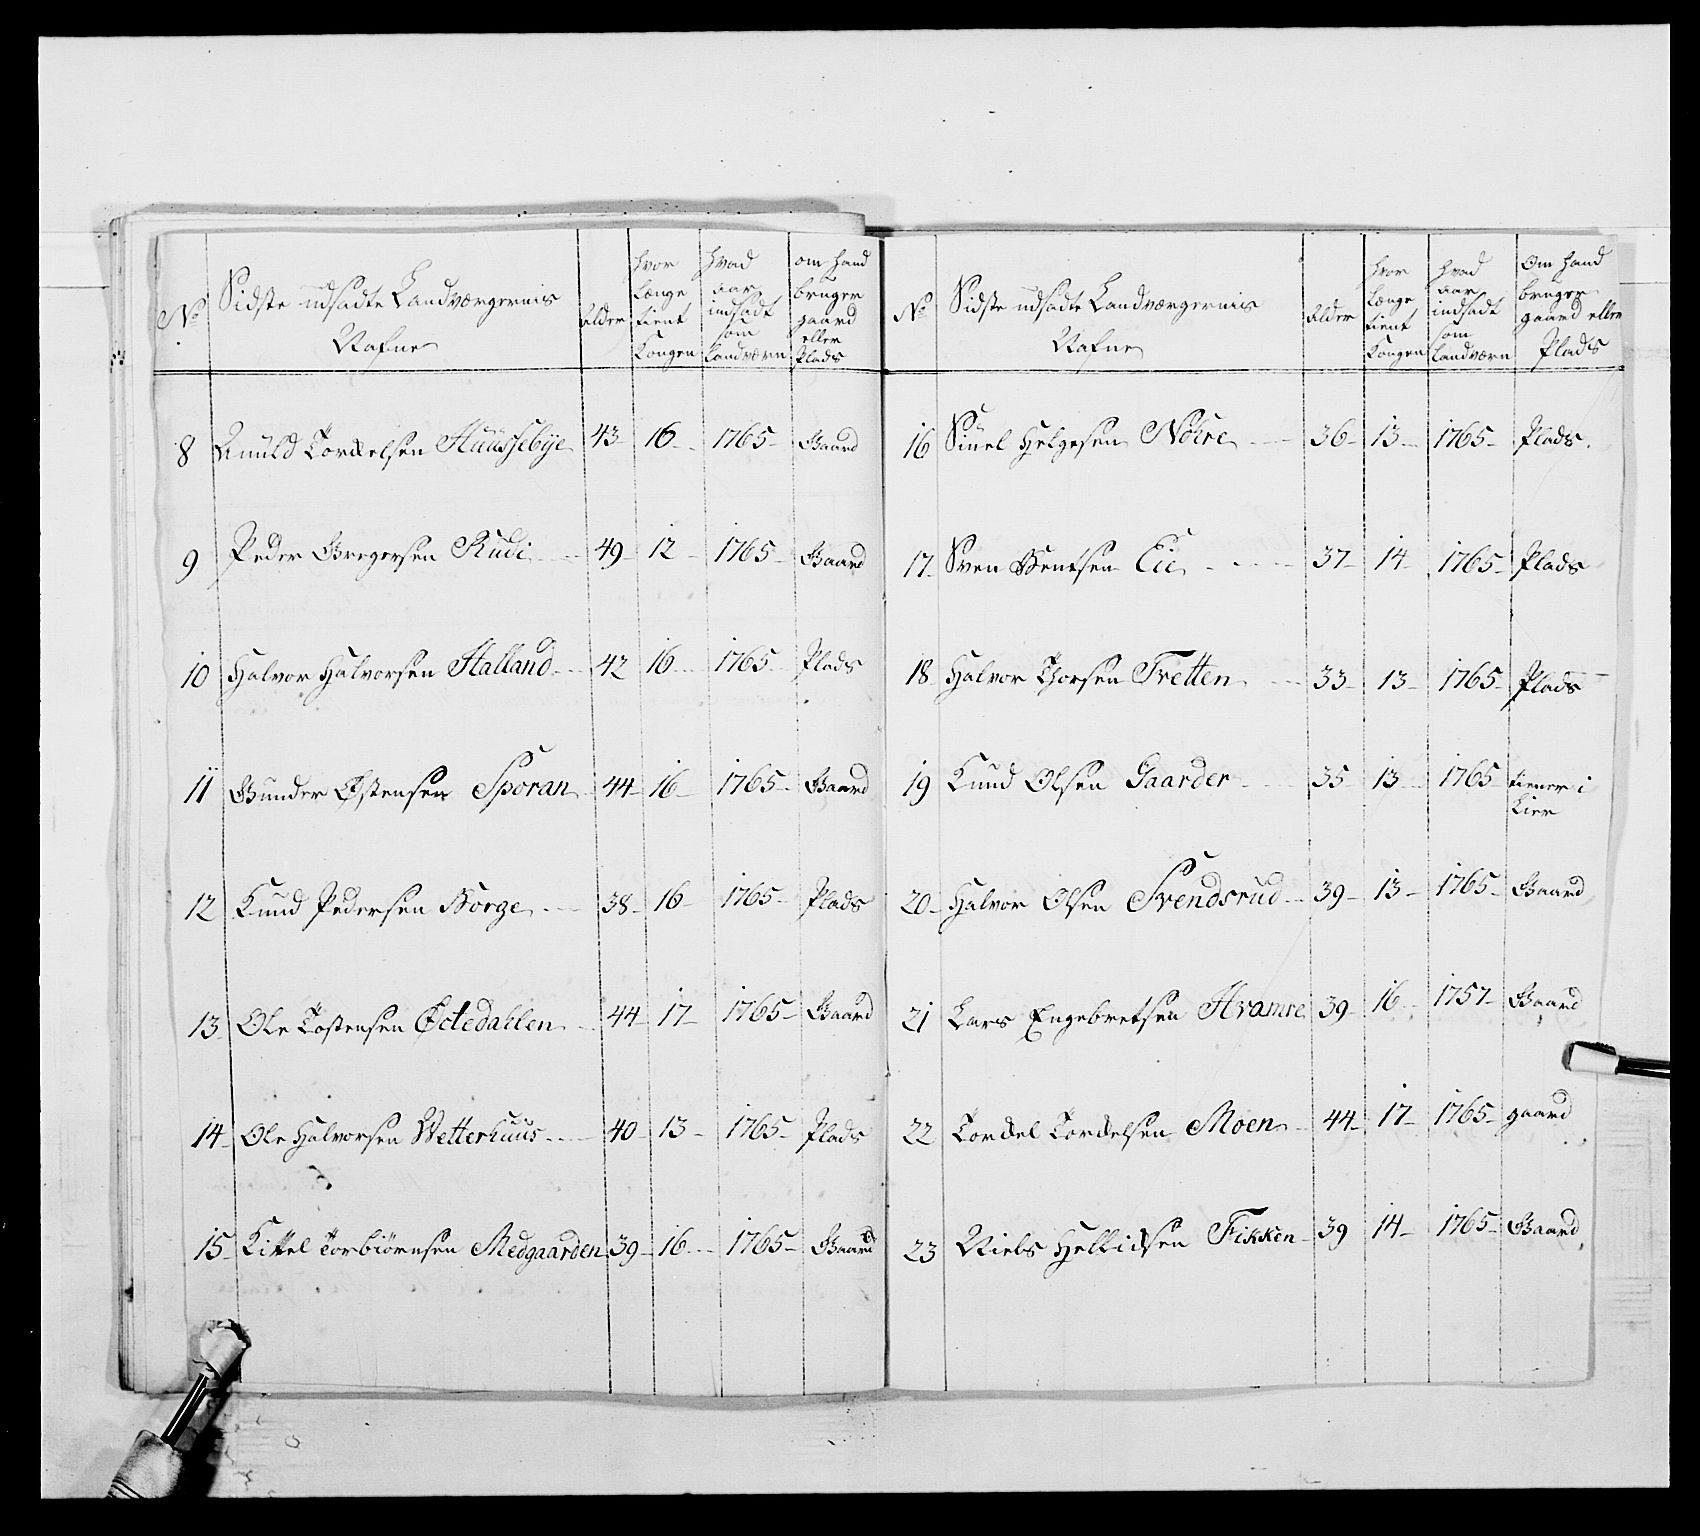 No
Sidste udsadte Landværgernis
Nafne
Alder
hvor
længe
tient
Kongen
hvad
aar
indsadt
som
Landværn
om hand
bruger
gaard
eller
Plads
8 Knuld Tordelsen Huussebye 43 16 1765 Gaard
9 Peder Gregersen Rudi 49 12 1765 Gaard
10 Halvor Halvorsen Halland 42 16 1765 Plads
11 Gunder Østensen Sporan 44 16 1765 Gaard
12 Knud Pedersen Borge 38 16 1765 Plads
13 Ole Tostensen Øctedahlen 44 17 1765 Gaard
14 Ole Halvorsen Wetterhuus 40 13 1765 Plads
15 Kittel Torbiørnsen Medgaarden 39 16 1765 Gaard
No
Sidste udsadte Landværgernis
Nafne
Alder
hvor
længe
tient
Kongen
hvad
aar
indsadt
som
Landværn
Om hand
bruger
gaard eller
Plads
16 Siuel Helgesen Nöhre 36 13 1765 Plads.
17 Sven Bentsen Eie 37 14 1765 Plads
18 Halvor Thorsen Tretten 33 13 1765 Plads
19 Knud Olsen Gaarder 35 13 1765 tiener i
Lier
20 Halvor Olsen Svendsrud 39 13 1765 Gaard
21 Lars Engebretsen Hramre 39 16 1757 Gaard
22 Tordel Tordelsen Moen 44 17 1765 gaard
23 Niels Hellicsen Fikken 39 14 1765 Gaard